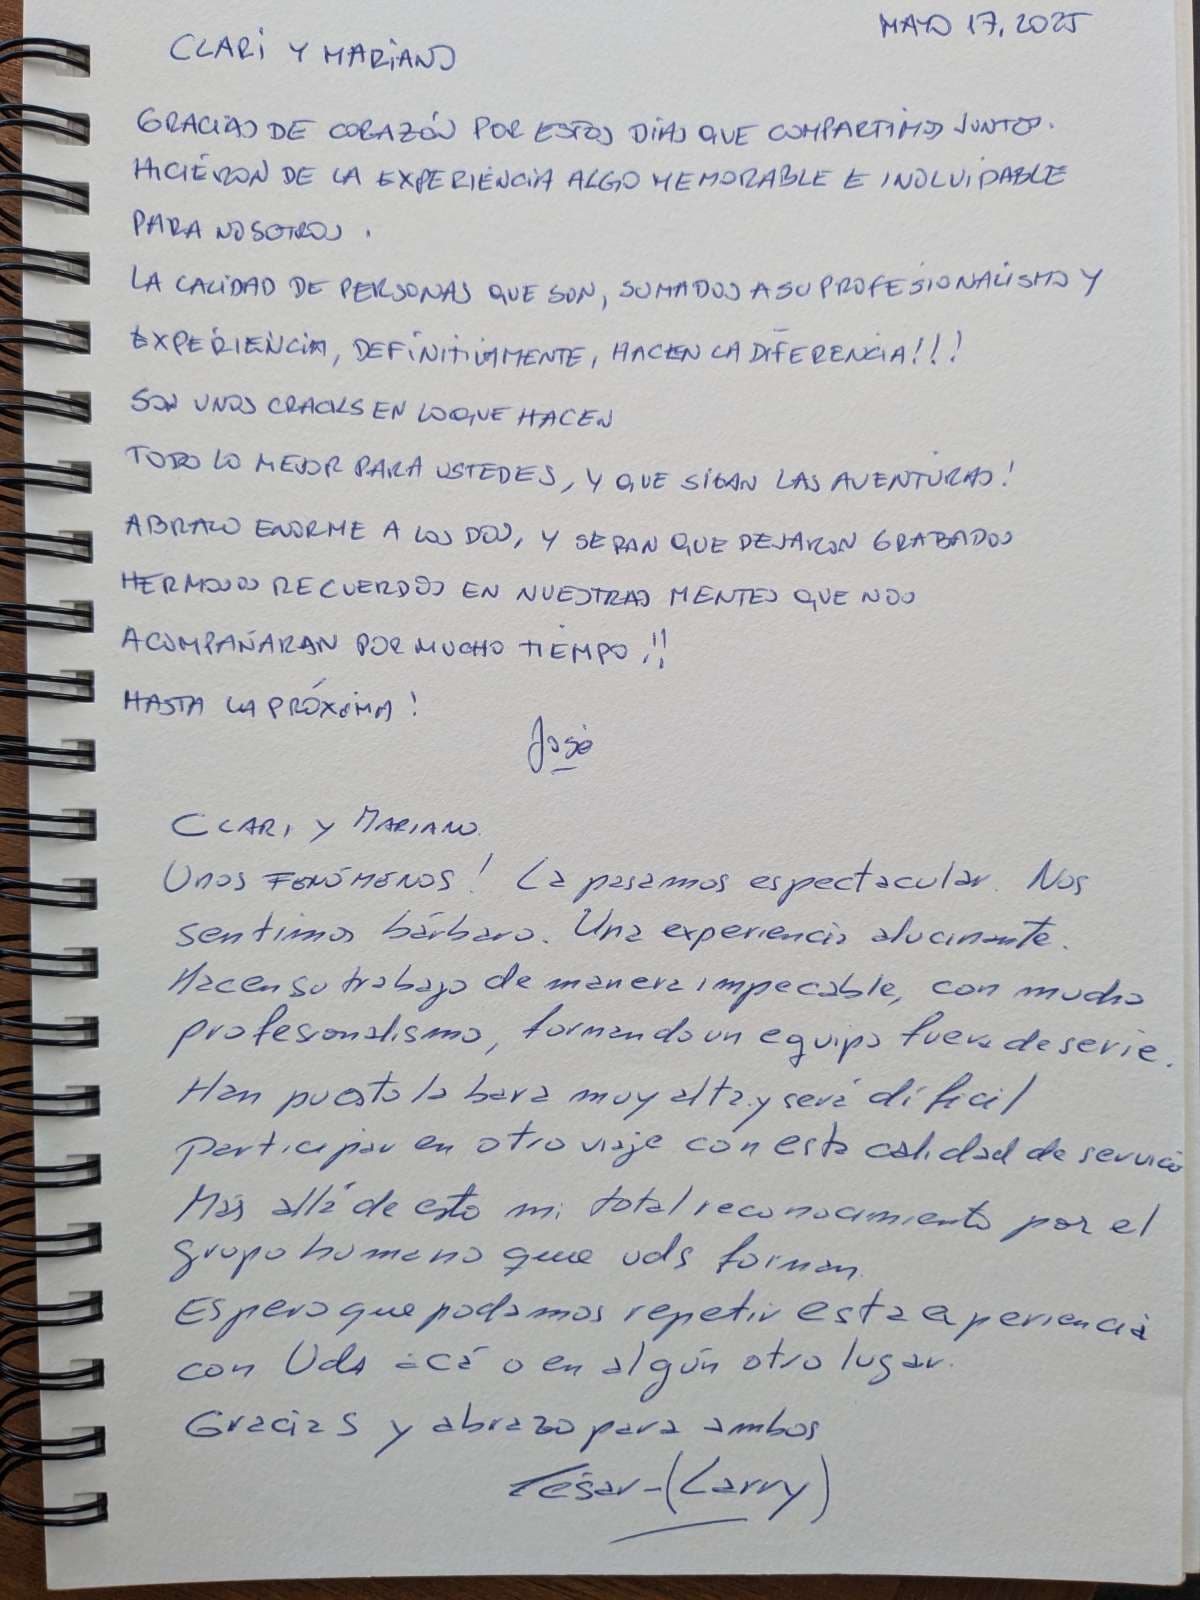 MAYO 17, 2025
CLARI Y MARIANO
GRACIAS DE CORAZÓN POR ESTOS DÍAS QUE COMPARTIMOS JUNTOS.
HICIÉRON DE LA EXPERIENCIA ALGO MEMORABLE E INOLVIDABLE
PARA NOSOTROS.
LA CALIDAD DE PERSONAS QUE SON, SUMADOS A SU PROFESIONALISMO Y
EXPERIENCIA, DEFINITIVAMENTE, HACEN LA DIFERENCIA!!!
SON UNOS CRACKS EN LO QUE HACEN
TODO LO MEJOR PARA USTEDES, Y QUE SIGAN LAS AVENTURAS!
ABRAZO ENORME A LOS DOS, Y SEPAN QUE DEJARON GRABADOS
HERMOSOS RECUERDOS EN NUESTRAS MENTES QUE NOS
ACOMPAÑARAN POR MUCHO TIEMPO!!
HASTA LA PRÓXIMA!
José
CLARI Y MARIANO.
Unos FENÓMENOS! La pasamos espectacular. Nos
sentimos bárbaro. Una experiencia alucinante.
Hacen su trabajo de manera impecable, con mucho
profesionalismo, formando un equipo fuera de serie.
Han puesto la bara muy alta y será difícil
participar en otro viaje con esta calidad de servicio
Más allá de esto mi total reconocimiento por el
grupo humano que uds forman.
Espero que podamos repetir esta experiencia
con Uds acá o en algún otro lugar.
Gracias y abrazo para ambos
César-(Larry)